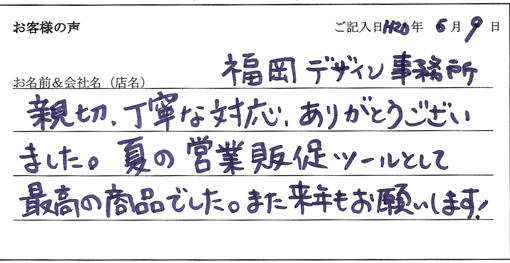 お客様の声 ご記入日H20年 6月 9日
お名前&会社名（店名） 福岡デザイン事務所
親切、丁寧な対応、ありがとうござい
ました。夏の営業販促ツールとして
最高の商品でした。また来年もお願いします!